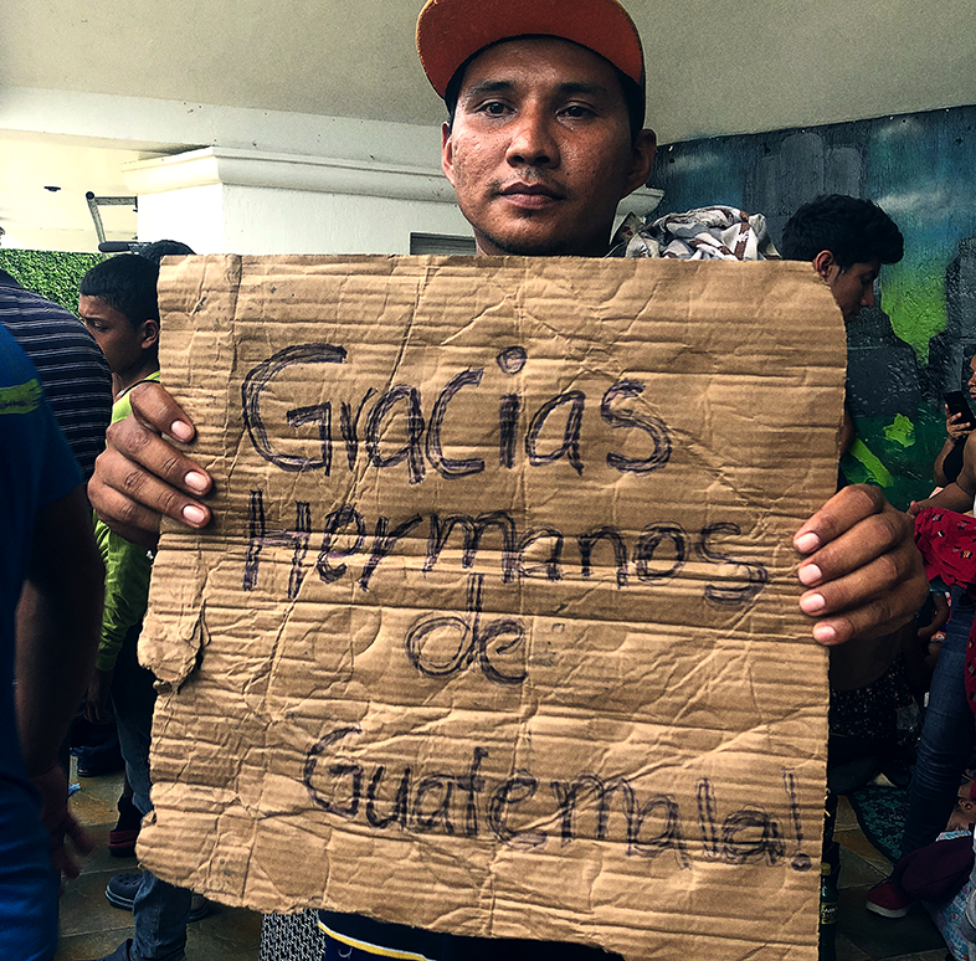 Gracias
Hermanos
de
Guatemala!